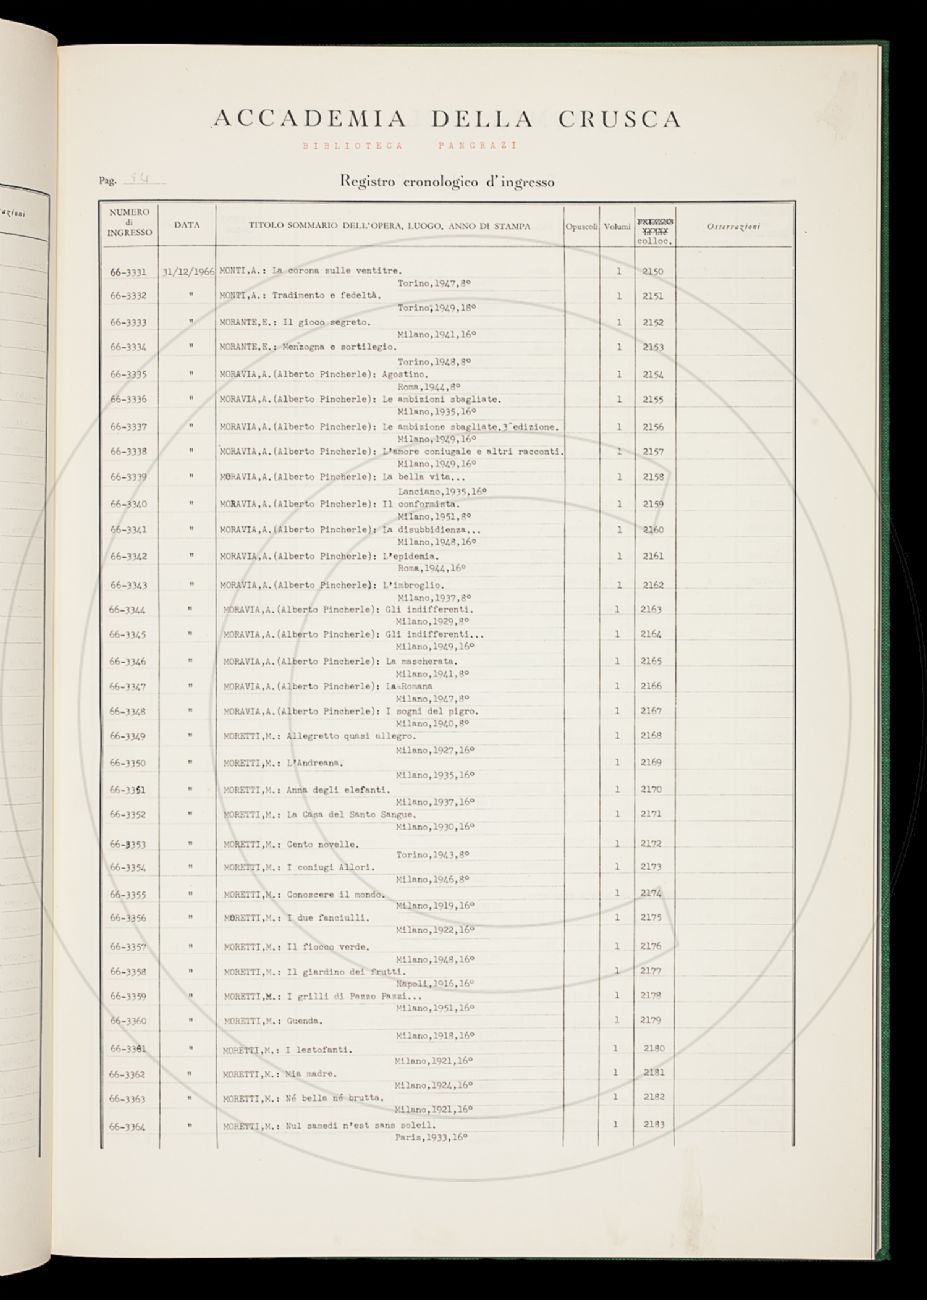 azioni
ACCADEMIA DELLA CRUSCA
BIBLIOTECA PANCRAZI
Pag.
Registro cronologico d'ingresso
NUMERO di INGRESSO DATA TITOLO SOMMARIO DELL'OPERA, LUOGO, ANNO DI STAMPA Opuscoli Volumi colloc. Osservazioni
66-3331 31/12/1966 MONTI,A.: La corona sulle ventitre. 1 2150
Torino,1947,8°
66-3332 " MONTI,A.: Tradimento e fedeltà. 1 2151
Torino,1949,18°
66-3333 " MORANTE,E.: Il gioco segreto. 1 2152
Milano,1941,16°
66-3334 " MORANTE,E.: Menzogna e sortilegio. 1 2153
Torino,1948,8°
66-3335 " MORAVIA,A.(Alberto Pincherle): Agostino. 1 2154
Roma,1944,8°
66-3336 " MORAVIA,A.(Alberto Pincherle): Le ambizioni sbagliate. 1 2155
Milano,1935,16°
66-3337 " MORAVIA,A.(Alberto Pincherle): Le ambizione sbagliate,3ªedizione. 1 2156
Milano,1949,16°
66-3338 " MORAVIA,A.(Alberto Pincherle): L'amore coniugale e altri racconti. 1 2157
Milano,1949,16°
66-3339 " MORAVIA,A.(Alberto Pincherle): La bella vita... 1 2158
Lanciano,1935,16°
66-3340 " MORAVIA,A.(Alberto Pincherle): Il conformista. 1 2159
Milano,1951,8°
66-3341 " MORAVIA,A.(Alberto Pincherle): La disubbidienza... 1 2160
Milano,1948,16°
66-3342 " MORAVIA,A.(Alberto Pincherle): L'epidemia. 1 2161
Roma,1944,16°
66-3343 " MORAVIA,A.(Alberto Pincherle): L'imbroglio. 1 2162
Milano,1937,8°
66-3344 " MORAVIA,A.(Alberto Pincherle): Gli indifferenti. 1 2163
Milano,1929,8°
66-3345 " MORAVIA,A.(Alberto Pincherle): Gli indifferenti... 1 2164
Milano,1949,16°
66-3346 " MORAVIA,A.(Alberto Pincherle): La mascherata. 1 2165
Milano,1941,8°
66-3347 " MORAVIA,A.(Alberto Pincherle): La Romana 1 2166
Milano,1947,8°
66-3348 " MORAVIA,A.(Alberto Pincherle): I sogni del pigro. 1 2167
Milano,1940,8°
66-3349 " MORETTI,M.: Allegretto quasi allegro. 1 2168
Milano,1927,16°
66-3350 " MORETTI,M.: L'Andreana. 1 2169
Milano,1935,16°
66-3351 " MORETTI,M.: Anna degli elefanti. 1 2170
Milano,1937,16°
66-3352 " MORETTI,M.: La Casa del Santo Sangue. 1 2171
Milano,1930,16°
66-3353 " MORETTI,M.: Cento novelle. 1 2172
Torino,1943,8°
66-3354 " MORETTI,M.: I coniugi Allori. 1 2173
Milano,1946,8°
66-3355 " MORETTI,M.: Conoscere il mondo. 1 2174
Milano,1919,16°
66-3356 " MORETTI,M.: I due fanciulli. 1 2175
Milano,1922,16°
66-3357 " MORETTI,M.: Il fiocco verde. 1 2176
Milano,1948,16°
66-3358 " MORETTI,M.: Il giardino dei frutti. 1 2177
Napoli,1916,16°
66-3359 " MORETTI,M.: I grilli di Pazzo Pazzi... 1 2178
Milano,1951,16°
66-3360 " MORETTI,M.: Guenda. 1 2179
Milano,1918,16°
66-3361 " MORETTI,M.: I lestofanti. 1 2180
Milano,1921,16°
66-3362 " MORETTI,M.: Mia madre. 1 2181
Milano,1924,16°
66-3363 " MORETTI,M.: Né bella né brutta. 1 2182
Milano,1921,16°
66-3364 " MORETTI,M.: Nul samedi n'est sans soleil. 1 2183
Paris,1933,16°